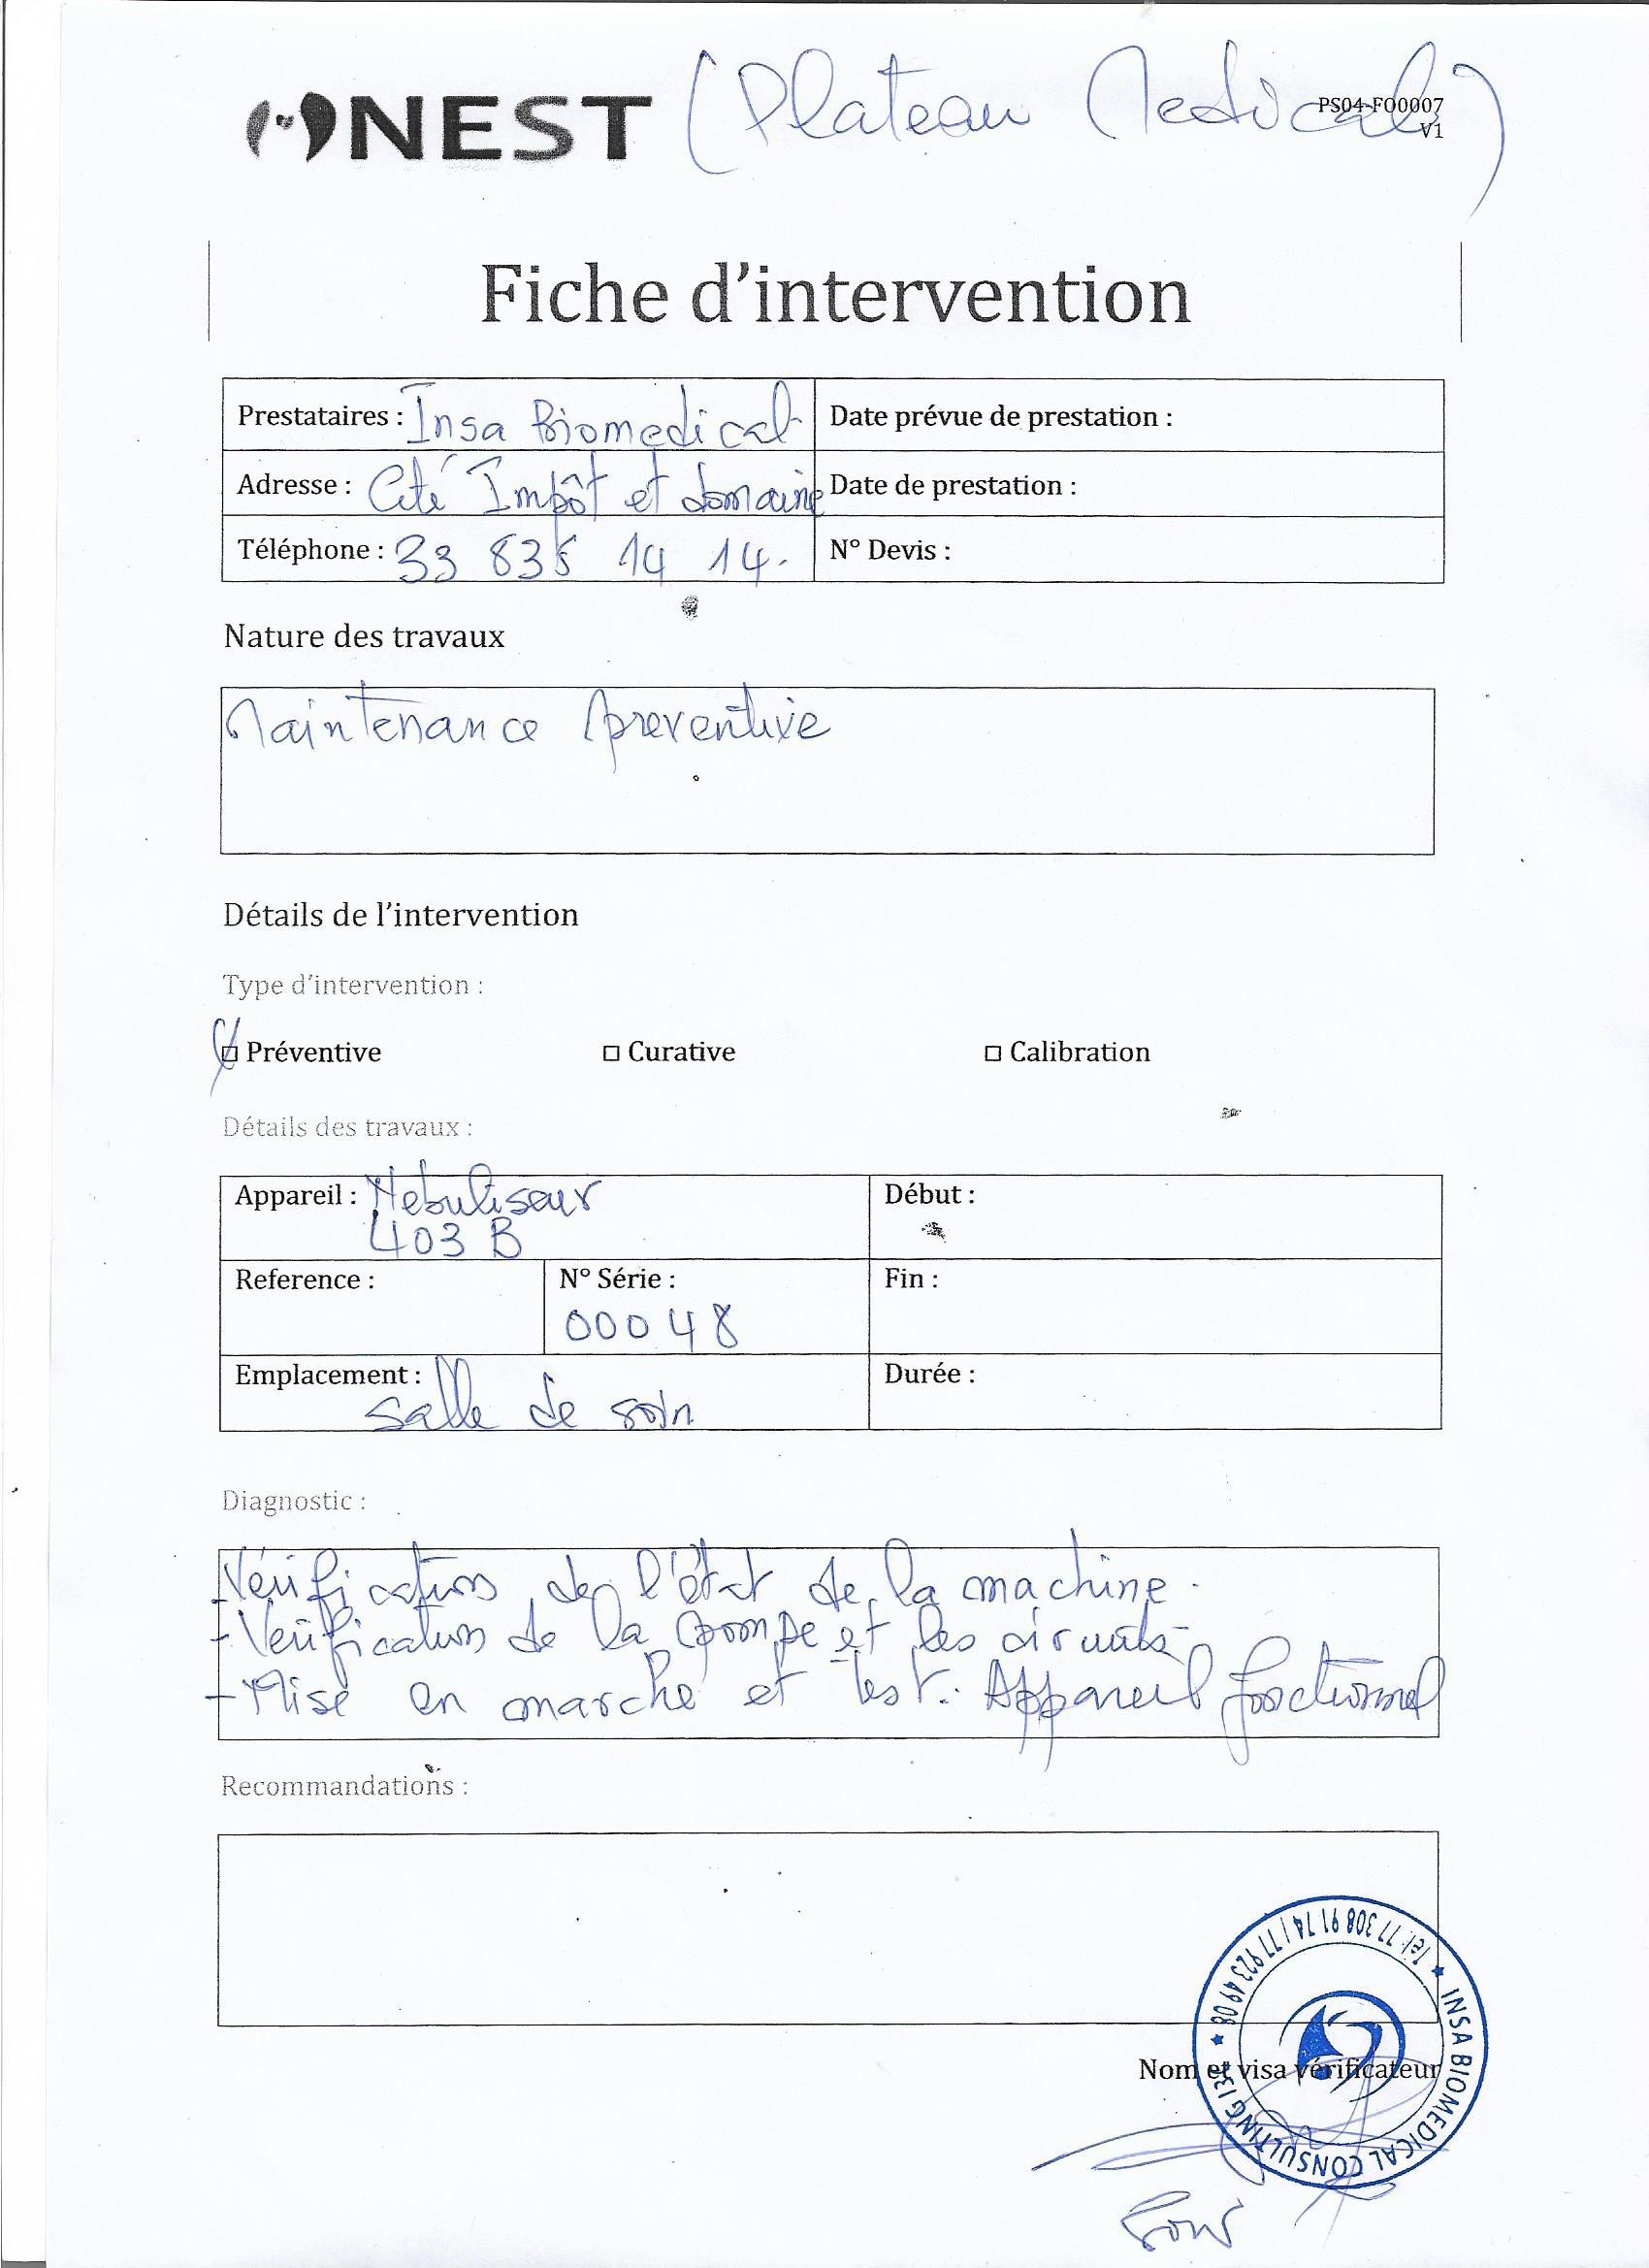 NEST (Plateau Medical)
PS04-FO0007
V1
Fiche d'intervention
Prestataires : Insa Biomedical
Date prévue de prestation :
Adresse : Cité Impôt et domaine
Date de prestation :
Téléphone : 33 835 14 14.
N° Devis :
Nature des travaux
Maintenance preventive
Détails de l'intervention
Type d'intervention :
Préventive
Curative
Calibration
Détails des travaux :
Appareil : Nebuliseur
403 B
Début :
Reference :
N° Série :
00048
Fin :
Emplacement :
salle de soin
Durée :
Diagnostic :
- Vérification de l'état de la machine.
- Verification de la pompe et les circuits
- Mise en marche et test. Appareil fonctionnel
Recommandations :
Nom et visa vérificateur
INSA BIOMEDICAL CONSULTING
Tél: 77 308 91 74 / 77 923 49 08